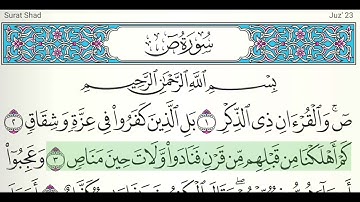 Surat Shad
Juz' 23
سُورَةُ صٓ
بِسْمِ ٱللَّهِ ٱلرَّحْمَٰنِ ٱلرَّحِيمِ
صٓ ۚ وَٱلْقُرْءَانِ ذِى ٱلذِّكْرِ ١ بَلِ ٱلَّذِينَ كَفَرُوا۟ فِى عِزَّةٍ وَشِقَاقٍ ٢
كَمْ أَهْلَكْنَا مِن قَبْلِهِم مِّن قَرْنٍ فَنَادَوا۟ وَّلَاتَ حِينَ مَنَاصٍ ٣ وَعَجِبُوٓا۟